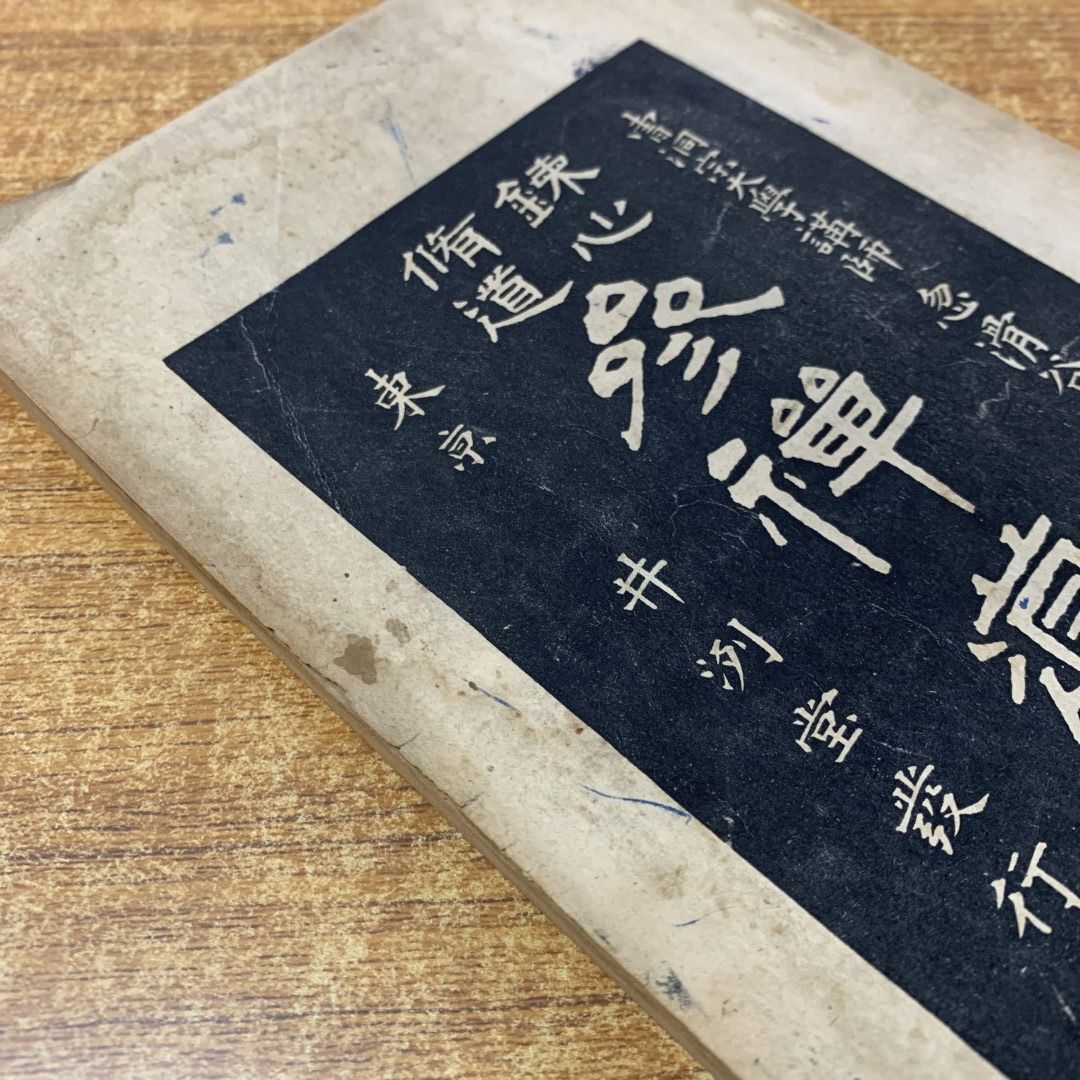 曹洞宗大學講師 忽滑谷
錬心
脩道
參禪道
東京 井冽堂發行